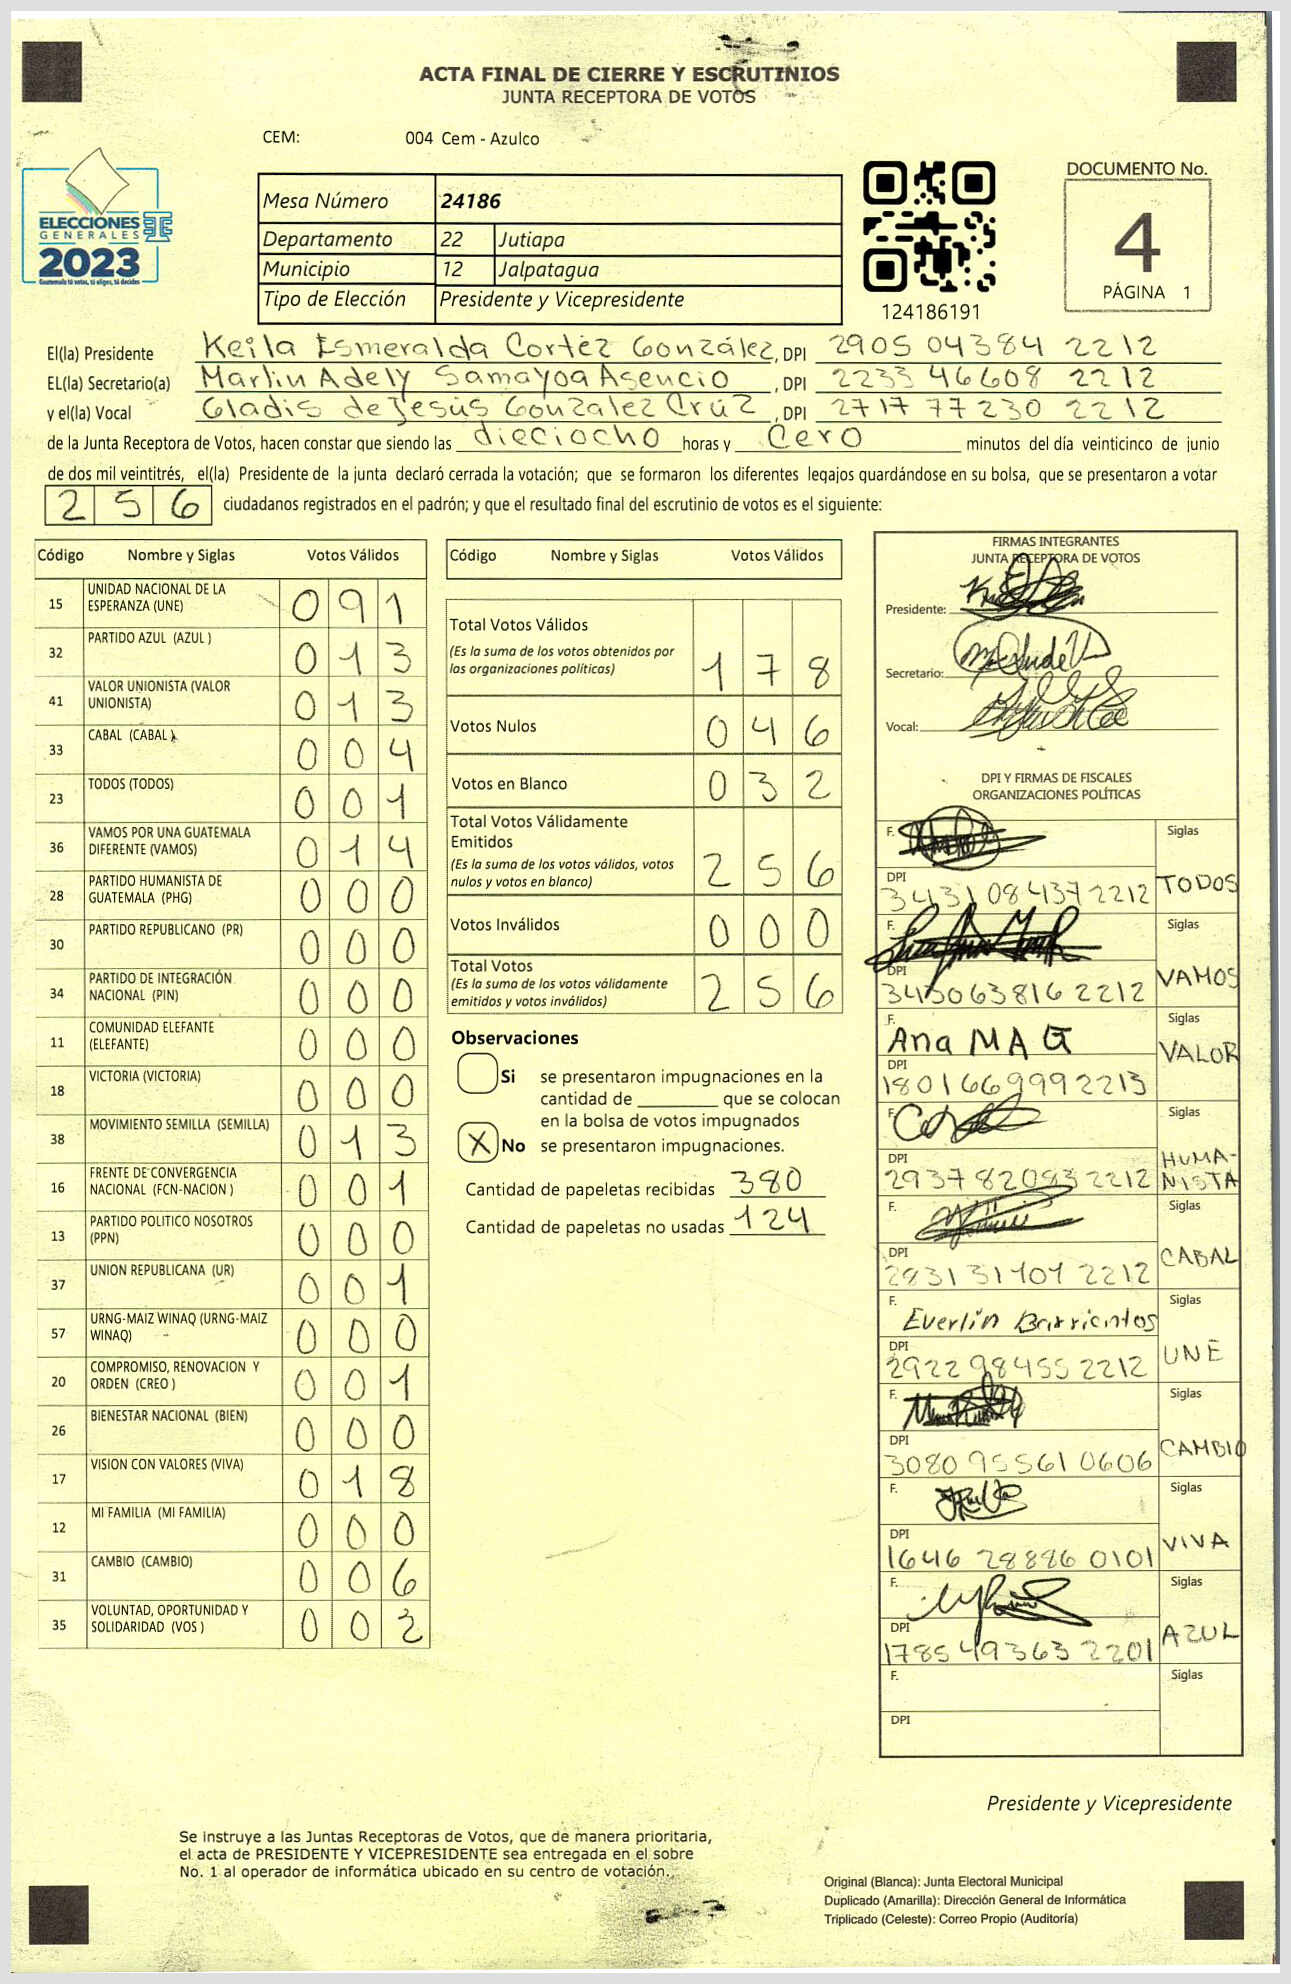 ACTA FINAL DE CIERRE Y ESCRUTINIOS
JUNTA RECEPTORA DE VOTOS
CEM: 004 Cem - Azulco
ELECCIONES
GENERALES
2023
Guatemala tú votas, tú eliges, tú decides
Mesa Número 24186
Departamento 22 Jutiapa
Municipio 12 Jalpatagua
Tipo de Elección Presidente y Vicepresidente
124186191
DOCUMENTO No.
4
PÁGINA 1
El(la) Presidente Keila Esmeralda Cortéz González, DPI 2905 04384 2212
EL(la) Secretario(a) Marlin Adely Samayoa Asencio, DPI 2233 46608 2212
y el(la) Vocal Gladis de Jesús Gonzalez Crúz, DPI 2717 77230 2212
de la Junta Receptora de Votos, hacen constar que siendo las dieciocho horas y Cero minutos del día veinticinco de junio
de dos mil veintitrés, el(la) Presidente de la junta declaró cerrada la votación; que se formaron los diferentes legajos guardándose en su bolsa, que se presentaron a votar
256 ciudadanos registrados en el padrón; y que el resultado final del escrutinio de votos es el siguiente:
Código Nombre y Siglas Votos Válidos
15 UNIDAD NACIONAL DE LA ESPERANZA (UNE) 091
32 PARTIDO AZUL (AZUL ) 013
41 VALOR UNIONISTA (VALOR UNIONISTA) 013
33 CABAL (CABAL ) 004
23 TODOS (TODOS) 001
36 VAMOS POR UNA GUATEMALA DIFERENTE (VAMOS) 014
28 PARTIDO HUMANISTA DE GUATEMALA (PHG) 000
30 PARTIDO REPUBLICANO (PR) 000
34 PARTIDO DE INTEGRACIÓN NACIONAL (PIN) 000
11 COMUNIDAD ELEFANTE (ELEFANTE) 000
18 VICTORIA (VICTORIA) 000
38 MOVIMIENTO SEMILLA (SEMILLA) 013
16 FRENTE DE CONVERGENCIA NACIONAL (FCN-NACION ) 001
13 PARTIDO POLITICO NOSOTROS (PPN) 000
37 UNION REPUBLICANA (UR) 001
57 URNG-MAIZ WINAQ (URNG-MAIZ WINAQ) 000
20 COMPROMISO, RENOVACION Y ORDEN (CREO ) 001
26 BIENESTAR NACIONAL (BIEN) 000
17 VISION CON VALORES (VIVA) 018
12 MI FAMILIA (MI FAMILIA) 000
31 CAMBIO (CAMBIO) 006
35 VOLUNTAD, OPORTUNIDAD Y SOLIDARIDAD (VOS ) 002
Código Nombre y Siglas Votos Válidos
Total Votos Válidos 178
(Es la suma de los votos obtenidos por
las organizaciones políticas)
Votos Nulos 046
Votos en Blanco 032
Total Votos Válidamente
Emitidos 256
(Es la suma de los votos válidos, votos
nulos y votos en blanco)
Votos Inválidos 000
Total Votos 256
(Es la suma de los votos válidamente
emitidos y votos inválidos)
Observaciones
Si se presentaron impugnaciones en la
cantidad de ________ que se colocan
en la bolsa de votos impugnados
X No se presentaron impugnaciones.
Cantidad de papeletas recibidas 380
Cantidad de papeletas no usadas 124
FIRMAS INTEGRANTES
JUNTA RECEPTORA DE VOTOS
Presidente:
Secretario:
Vocal:
DPI Y FIRMAS DE FISCALES
ORGANIZACIONES POLÍTICAS
F. Siglas
DPI 3431 08437 2212 TODOS
F. Siglas
DPI 343063816 2212 VAMOS
F. Ana MAG Siglas
DPI 1801669992213 VALOR
F. Siglas
DPI 2937820832212 HUMA-
NISTA
F. Siglas
DPI 2831 31401 2212 CABAL
F. Everlin Barrientos Siglas
DPI 2922 98455 2212 UNE
F. Siglas
DPI 3080 95561 0606 CAMBIO
F. Siglas
DPI 1646 28886 0101 VIVA
F. Siglas
DPI 1785 49363 2201 AZUL
F. Siglas
DPI
Presidente y Vicepresidente
Se instruye a las Juntas Receptoras de Votos, que de manera prioritaria,
el acta de PRESIDENTE Y VICEPRESIDENTE sea entregada en el sobre
No. 1 al operador de informática ubicado en su centro de votación.
Original (Blanca): Junta Electoral Municipal
Duplicado (Amarilla): Dirección General de Informática
Triplicado (Celeste): Correo Propio (Auditoría)